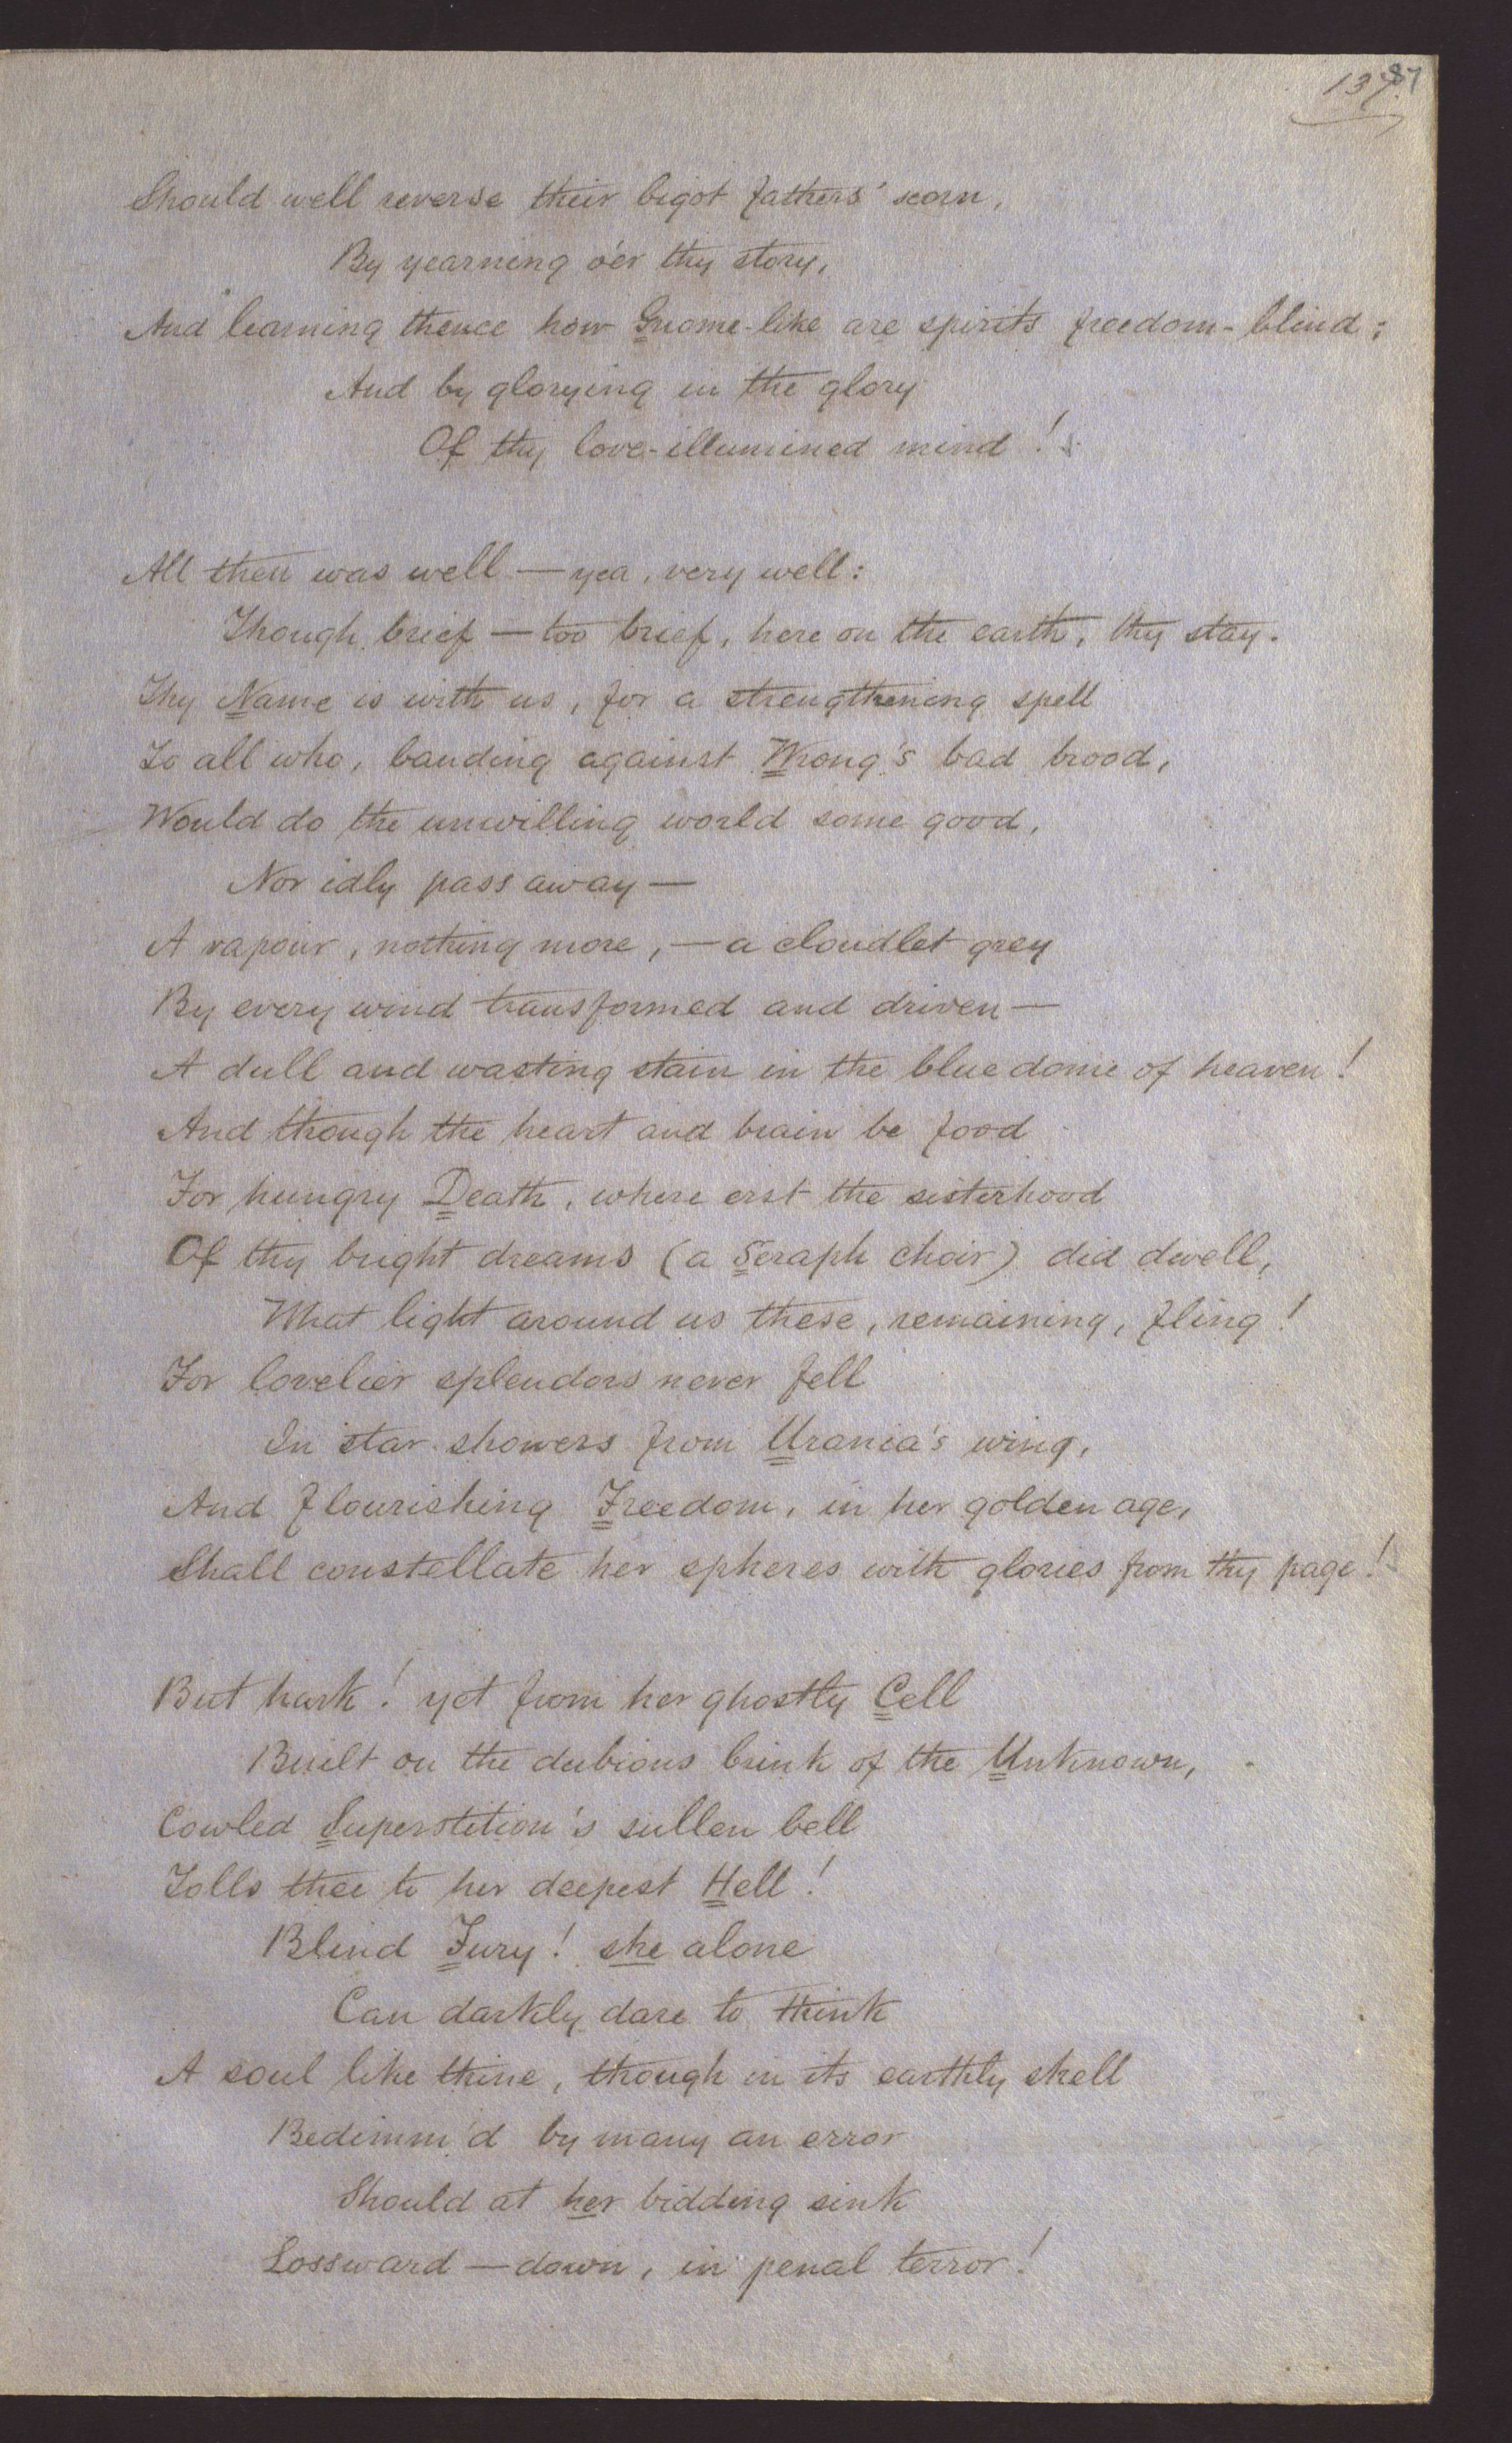 137. 87
Should well reverse their bigot fathers' scorn,
By yearning o'er thy story,
And learning thence how Gnome-like are spirits freedom-blind;
And by glorying in the glory
Of thy love-illumined mind!
All then was well — yea, very well:
Though brief — too brief, here on the earth, thy stay.
Thy Name is with us, for a strengthening spell
To all who, banding against Wrong's bad brood,
Would do the unwilling world some good,
Nor idly pass away —
A vapour, nothing more, — a cloudlet grey
By every wind transformed and driven —
A dull and wasting stain in the blue dome of heaven!
And though the heart and brain be food
For hungry Death, where erst the sisterhood
Of thy bright dreams (a Seraph choir) did dwell,
What light around us these, remaining, fling!
For lovelier splendors never fell
In star-showers from Urania's wing,
And flourishing Freedom, in her golden age,
Shall constellate her spheres with glories from thy page!
But hark! yet from her ghostly Cell
Built on the dubious brink of the Unknown,
Cowled Superstition's sullen bell
Tolls thee to her deepest Hell!
Blind Fury! she alone
Can darkly dare to think
A soul like thine, though in its earthly shell
Bedimm'd by many an error
Should at her bidding sink
Lossward — down, in penal terror!